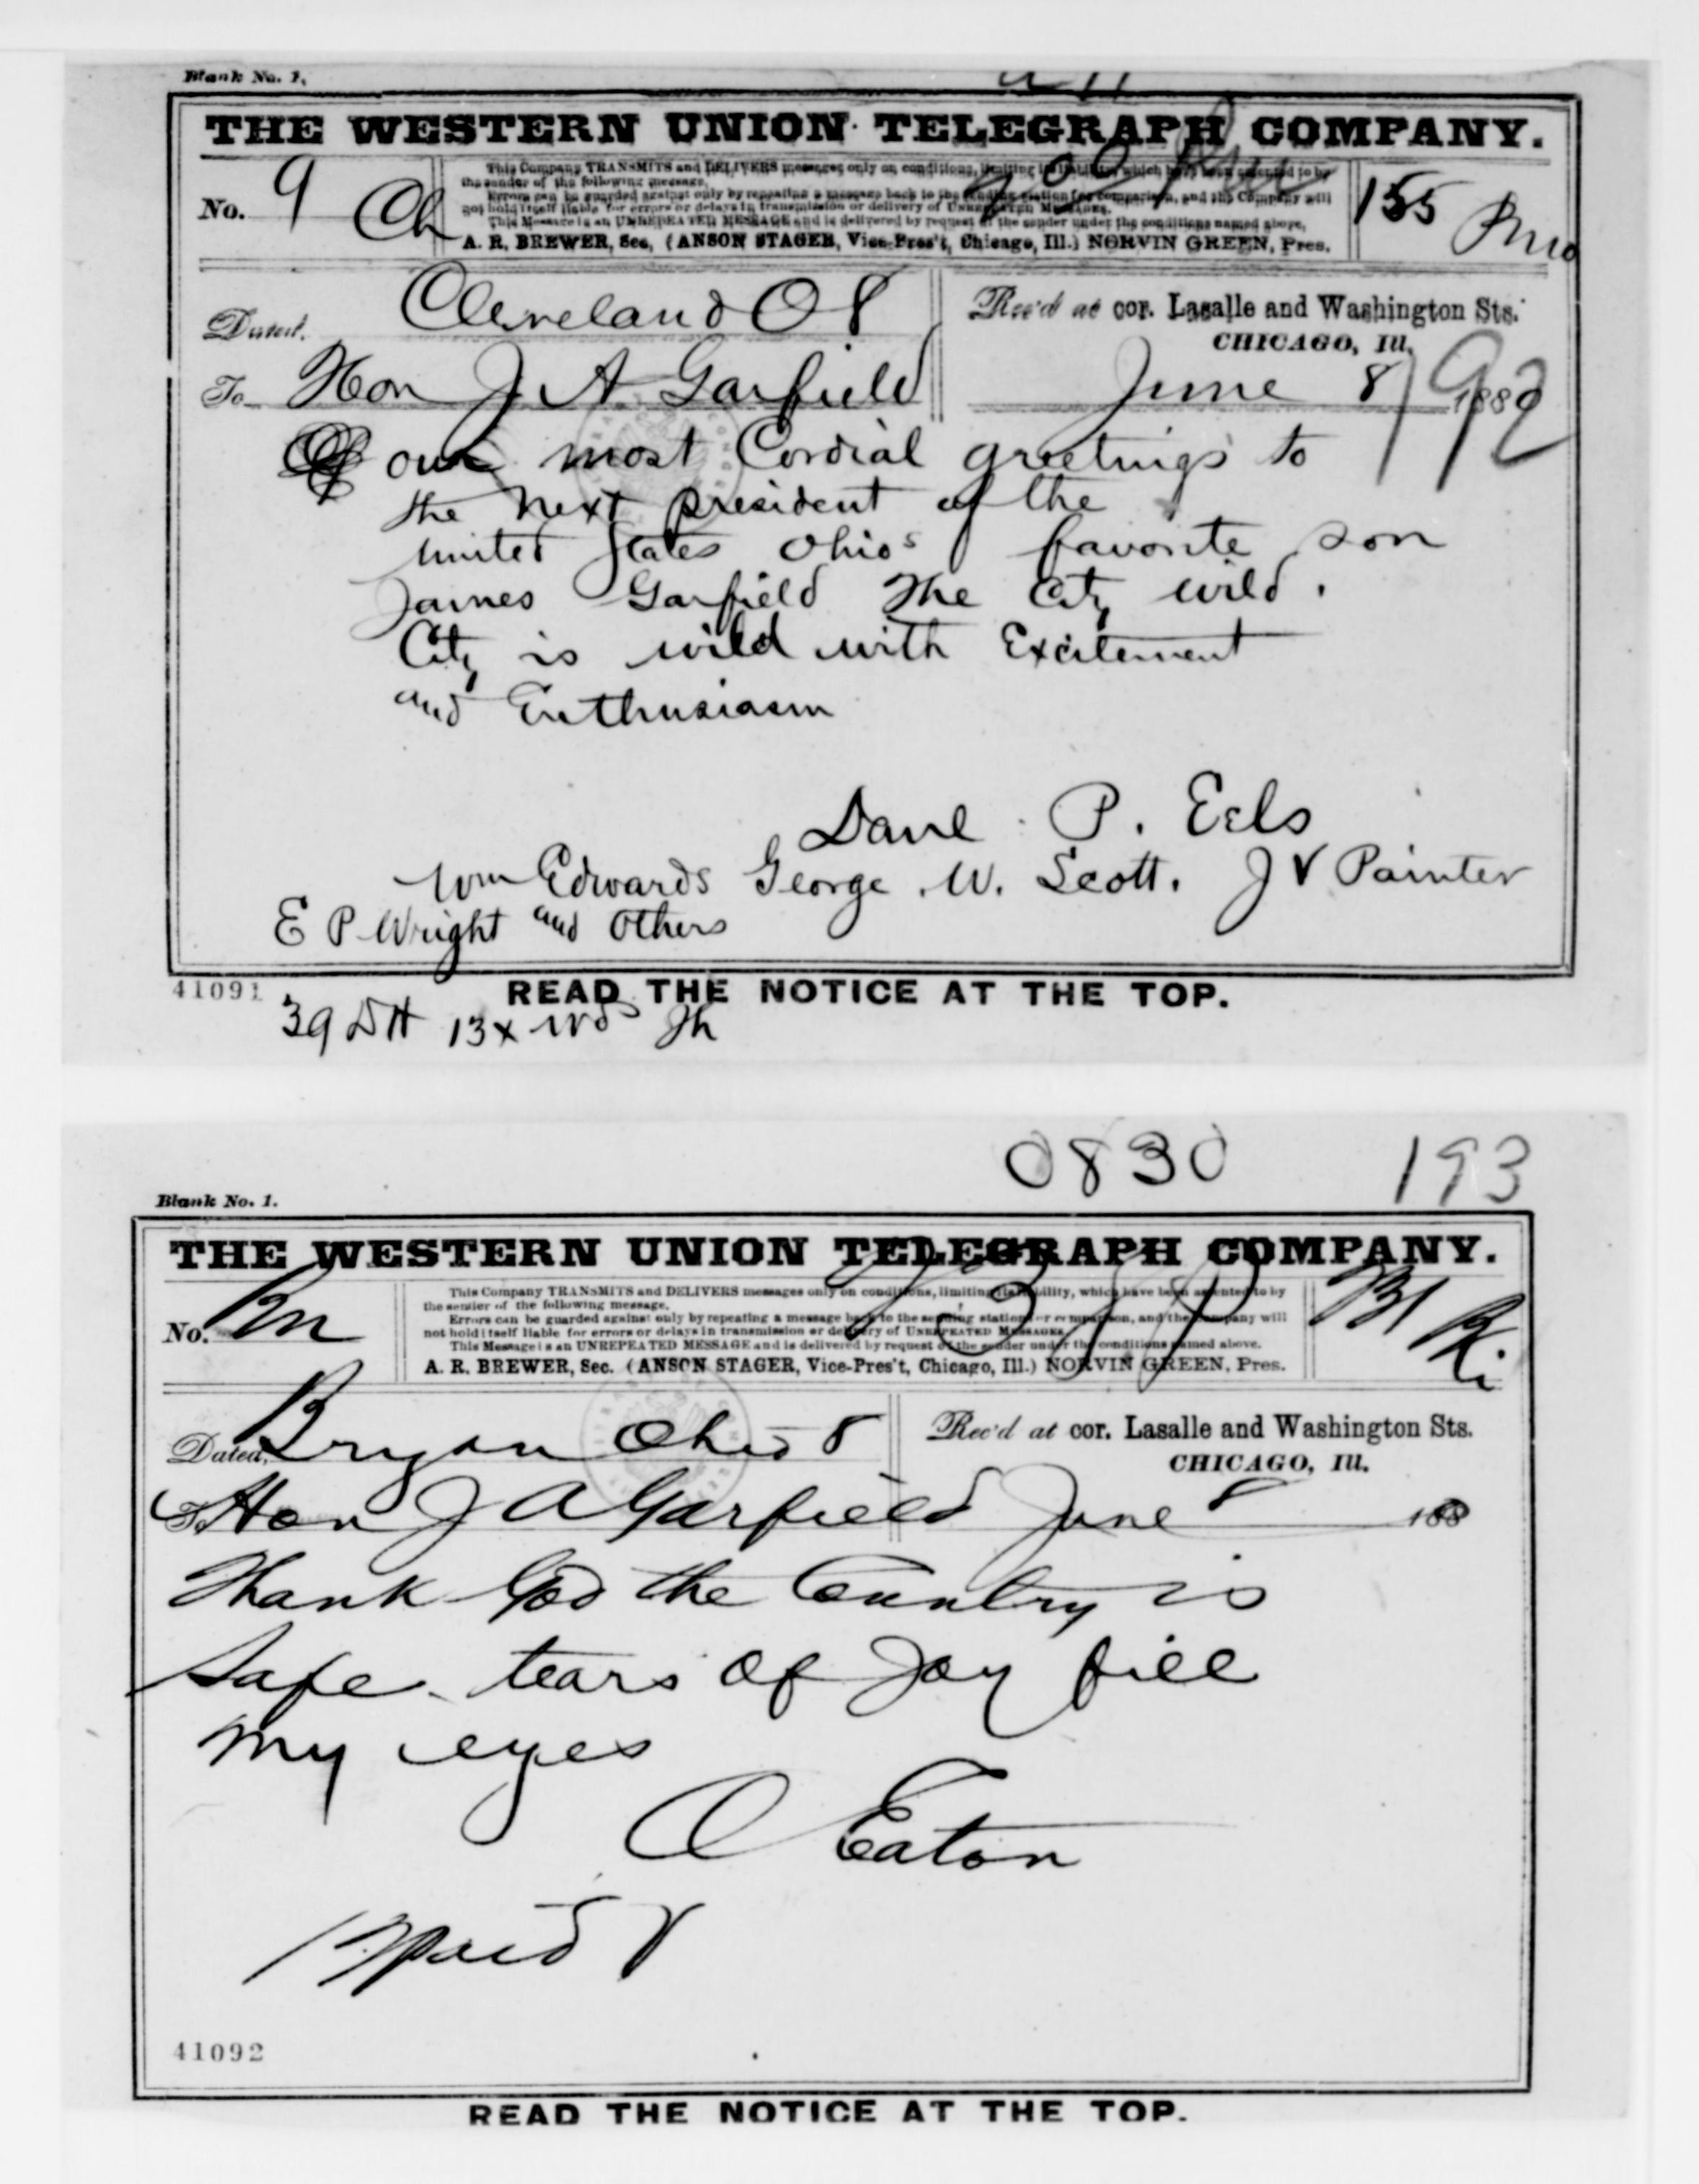 Blank No. 1.
THE WESTERN UNION TELEGRAPH COMPANY.
No. 9 Ch
This Company TRANSMITS and DELIVERS messages only on conditions, limiting its liability, which have been assented to by
the sender of the following message.
Errors can be guarded against only by repeating a message back to the sending station for comparison, and the Company will
not hold itself liable for errors or delays in transmission or delivery of UNREPEATED MESSAGES.
This Message is an UNREPEATED MESSAGE and is delivered by request of the sender under the conditions named above.
A. R. BREWER, Sec. (ANSON STAGER, Vice-Pres't, Chicago, Ill.) NORVIN GREEN, Pres.
155
Dated. Cleveland O 8
Rec'd at cor. Lasalle and Washington Sts.
CHICAGO, Ill.
To Hon J. A. Garfield
June 8 1880
192
our most Cordial greetings to
the next president of the
united States Ohios favorite son
James Garfield The City wild.
City is wild with Excitement
and Enthusiasm
Danl P. Eels
Wm Edwards George W. Scott. J V Painter
E P Wright and Others
41091
READ THE NOTICE AT THE TOP.
39 DH 13x wds Jh
0830 193
Blank No. 1.
THE WESTERN UNION TELEGRAPH COMPANY.
No. Bn
This Company TRANSMITS and DELIVERS messages only on conditions, limiting its liability, which have been assented to by
the sender of the following message.
Errors can be guarded against only by repeating a message back to the sending station for comparison, and the Company will
not hold itself liable for errors or delays in transmission or delivery of UNREPEATED MESSAGES
This Message is an UNREPEATED MESSAGE and is delivered by request of the sender under the conditions named above.
A. R. BREWER, Sec. (ANSON STAGER, Vice-Pres't, Chicago, Ill.) NORVIN GREEN, Pres.
Dated, Bryan Ohio 8
Rec'd at cor. Lasalle and Washington Sts.
CHICAGO, Ill.
To Hon J A Garfield June 8 1880
Thank God the Country is
Safe tears of Joy fill
my eyes
O Eaton
paid
41092
READ THE NOTICE AT THE TOP.